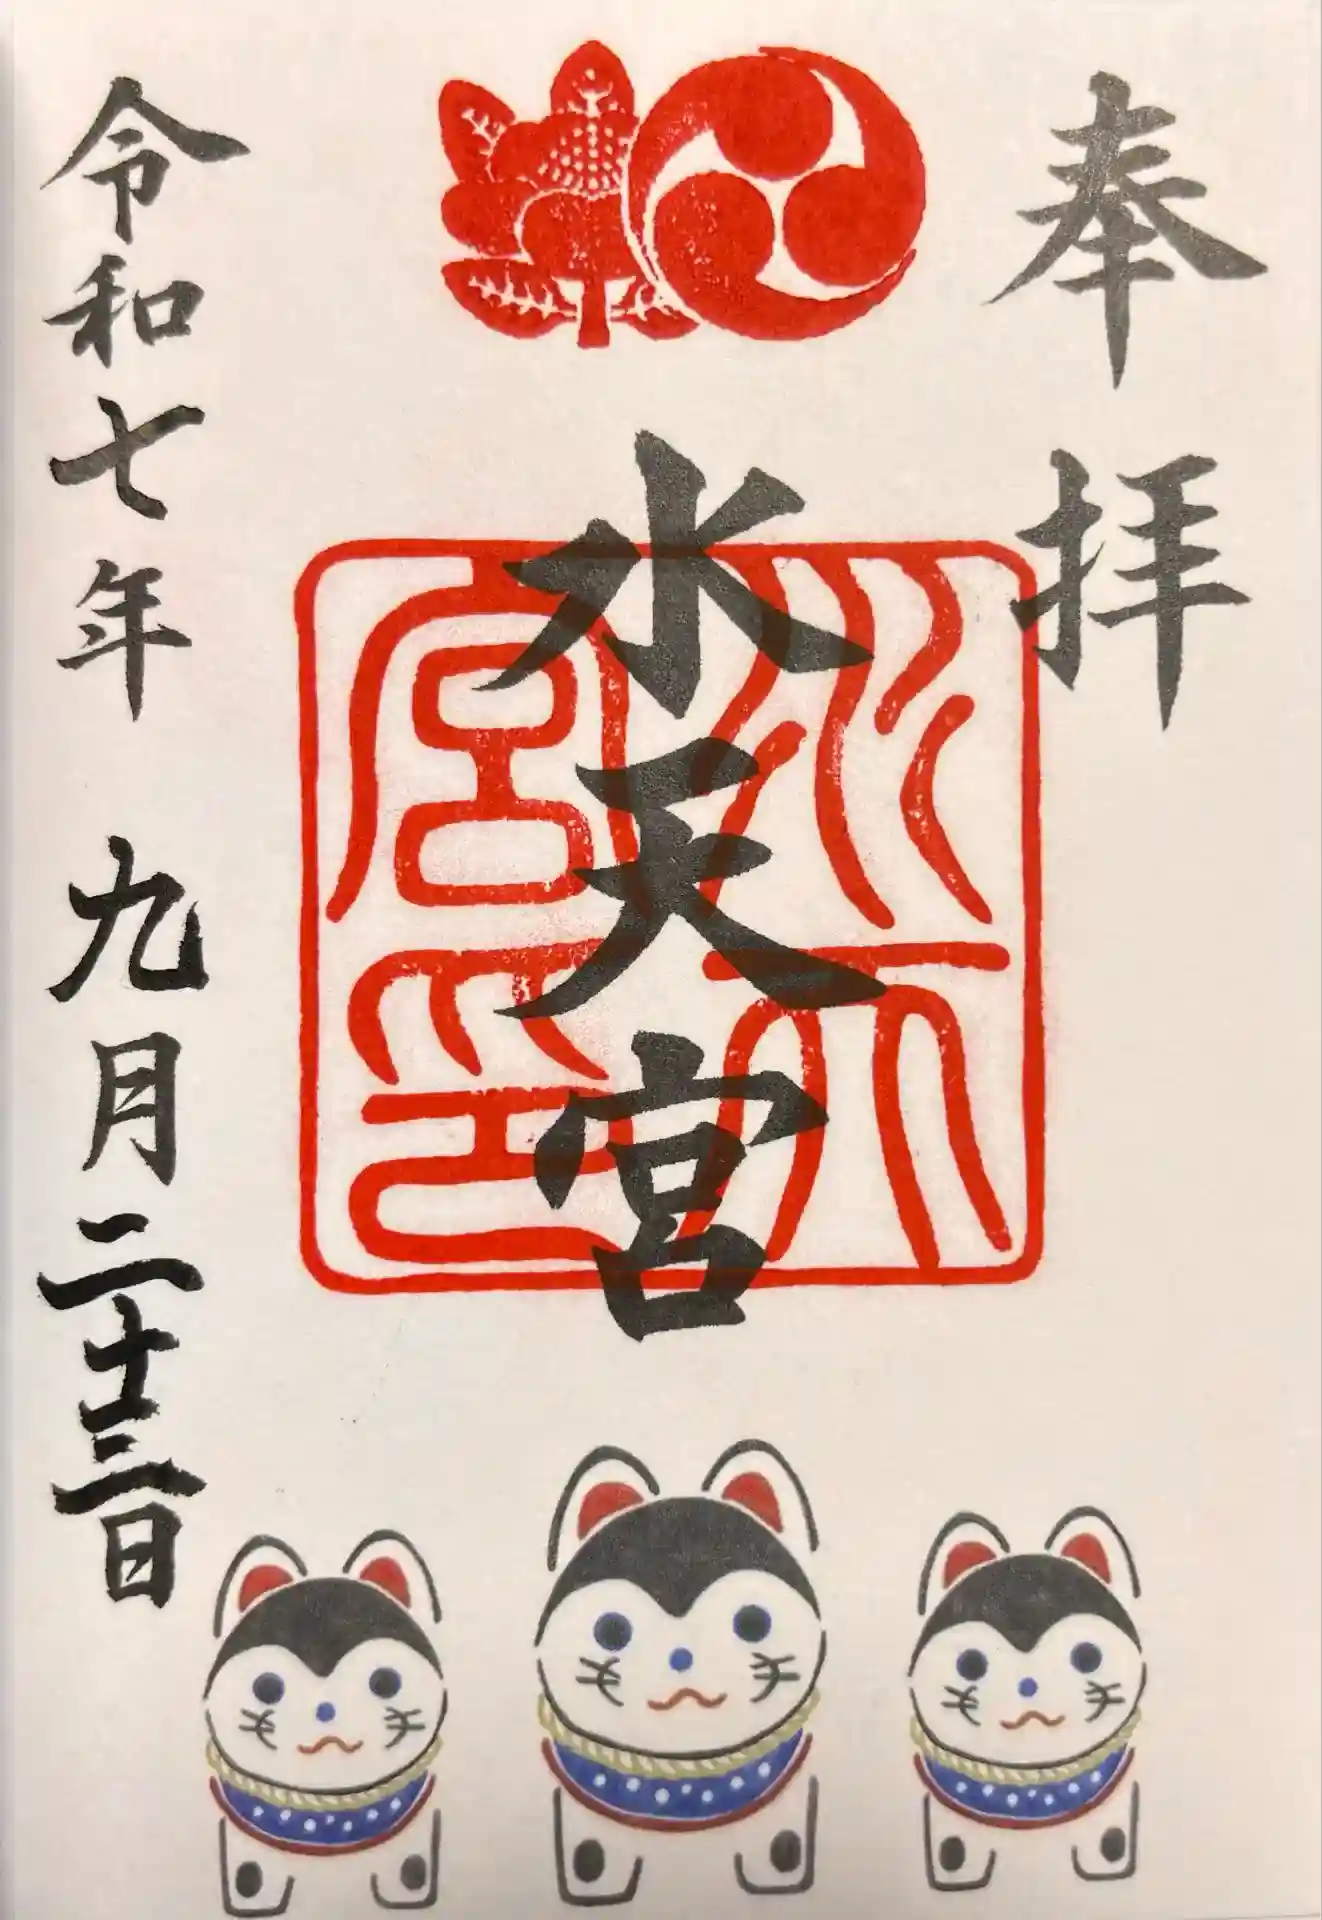 奉拝
水天宮
水天宮印
令和七年 九月二十三日